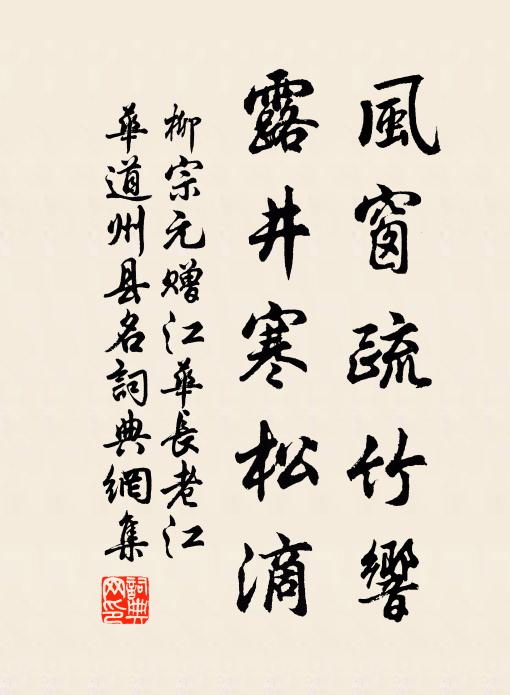 風窗疏竹響
露井寒松滴
柳宗元赠江華長老江
華道州县名詞典網集
詞典網印